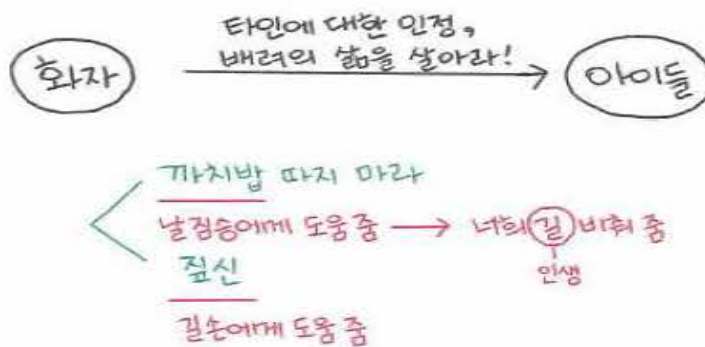 타인에 대한 인정,
화자 배려의 삶을 살아라! 아이들
까치밥 따지 마라
날짐승에게 도움 줌 → 너희 길 비춰 줌
짚신 인생
길손에게 도움 줌